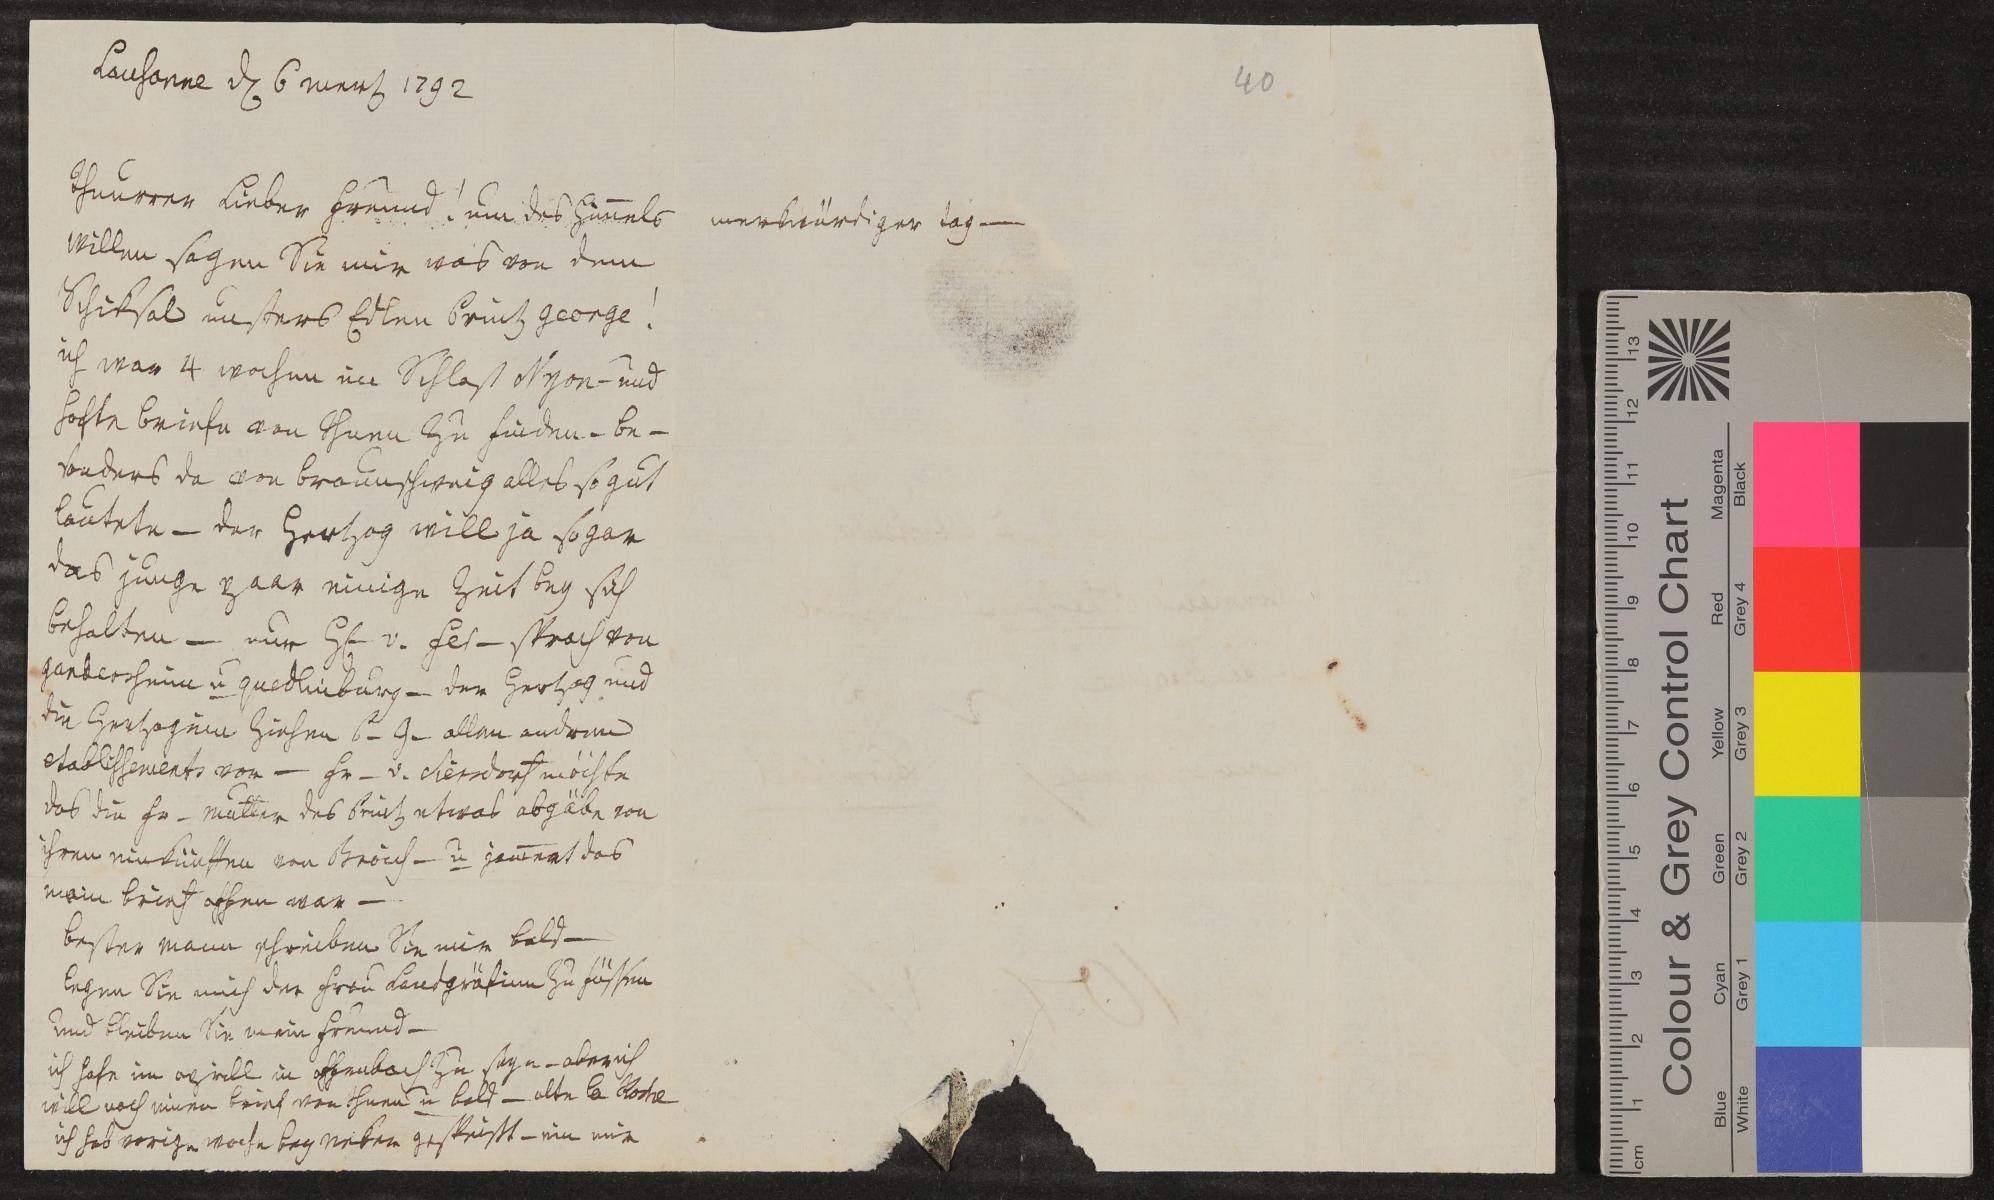 Lausanne d 6 mertz 1792
40
Theurrer Lieber Freund! um des Him̅els
willen sagen Sie mir was von dem
Schiksal unsters Edlen Printz george!
ich war 4 wochen im Schloß Nyon – und
hofte briefe von Ihnen zu finden – be –
sonders da von braunschweig alles so gut
lautete – der Hertzog will ja sogar
das junge paar einige Zeit bey sich
behalten – nur H v. Fer – sprach von
gandersheim u quedlinburg – der Hertzog und
die Hertzoginn ziehen P – G – allen andren
etablissements vor – Fr – v. dierdorf möchte
das die Fr – mutter des Printz etwas abgäbe von
ihren einkünften von Broich – u jam̅ert das
mein brief offen war –
bester mann schreiben Sie mir bald –
legen Sie mich der Frau Landgräfinn zu füssen
und bleiben Sie mein Freund –
ich hofe im aprill in offenbach zu seyn – aber ich
will noch einen brief von Ihnen u bald – alte la Roche
ich hab vorige woche bey neker gespeißt – ein mir
merkwürdiger tag –
Colour & Grey Control Chart
Blue Cyan Green Yellow Red Magenta
White Grey 1 Grey 2 Grey 3 Grey 4 Black
cm 1 2 3 4 5 6 7 8 9 10 11 12 13